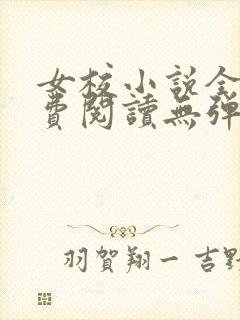 女校小説全
費閱讀無彈
羽賀翔一 吉野